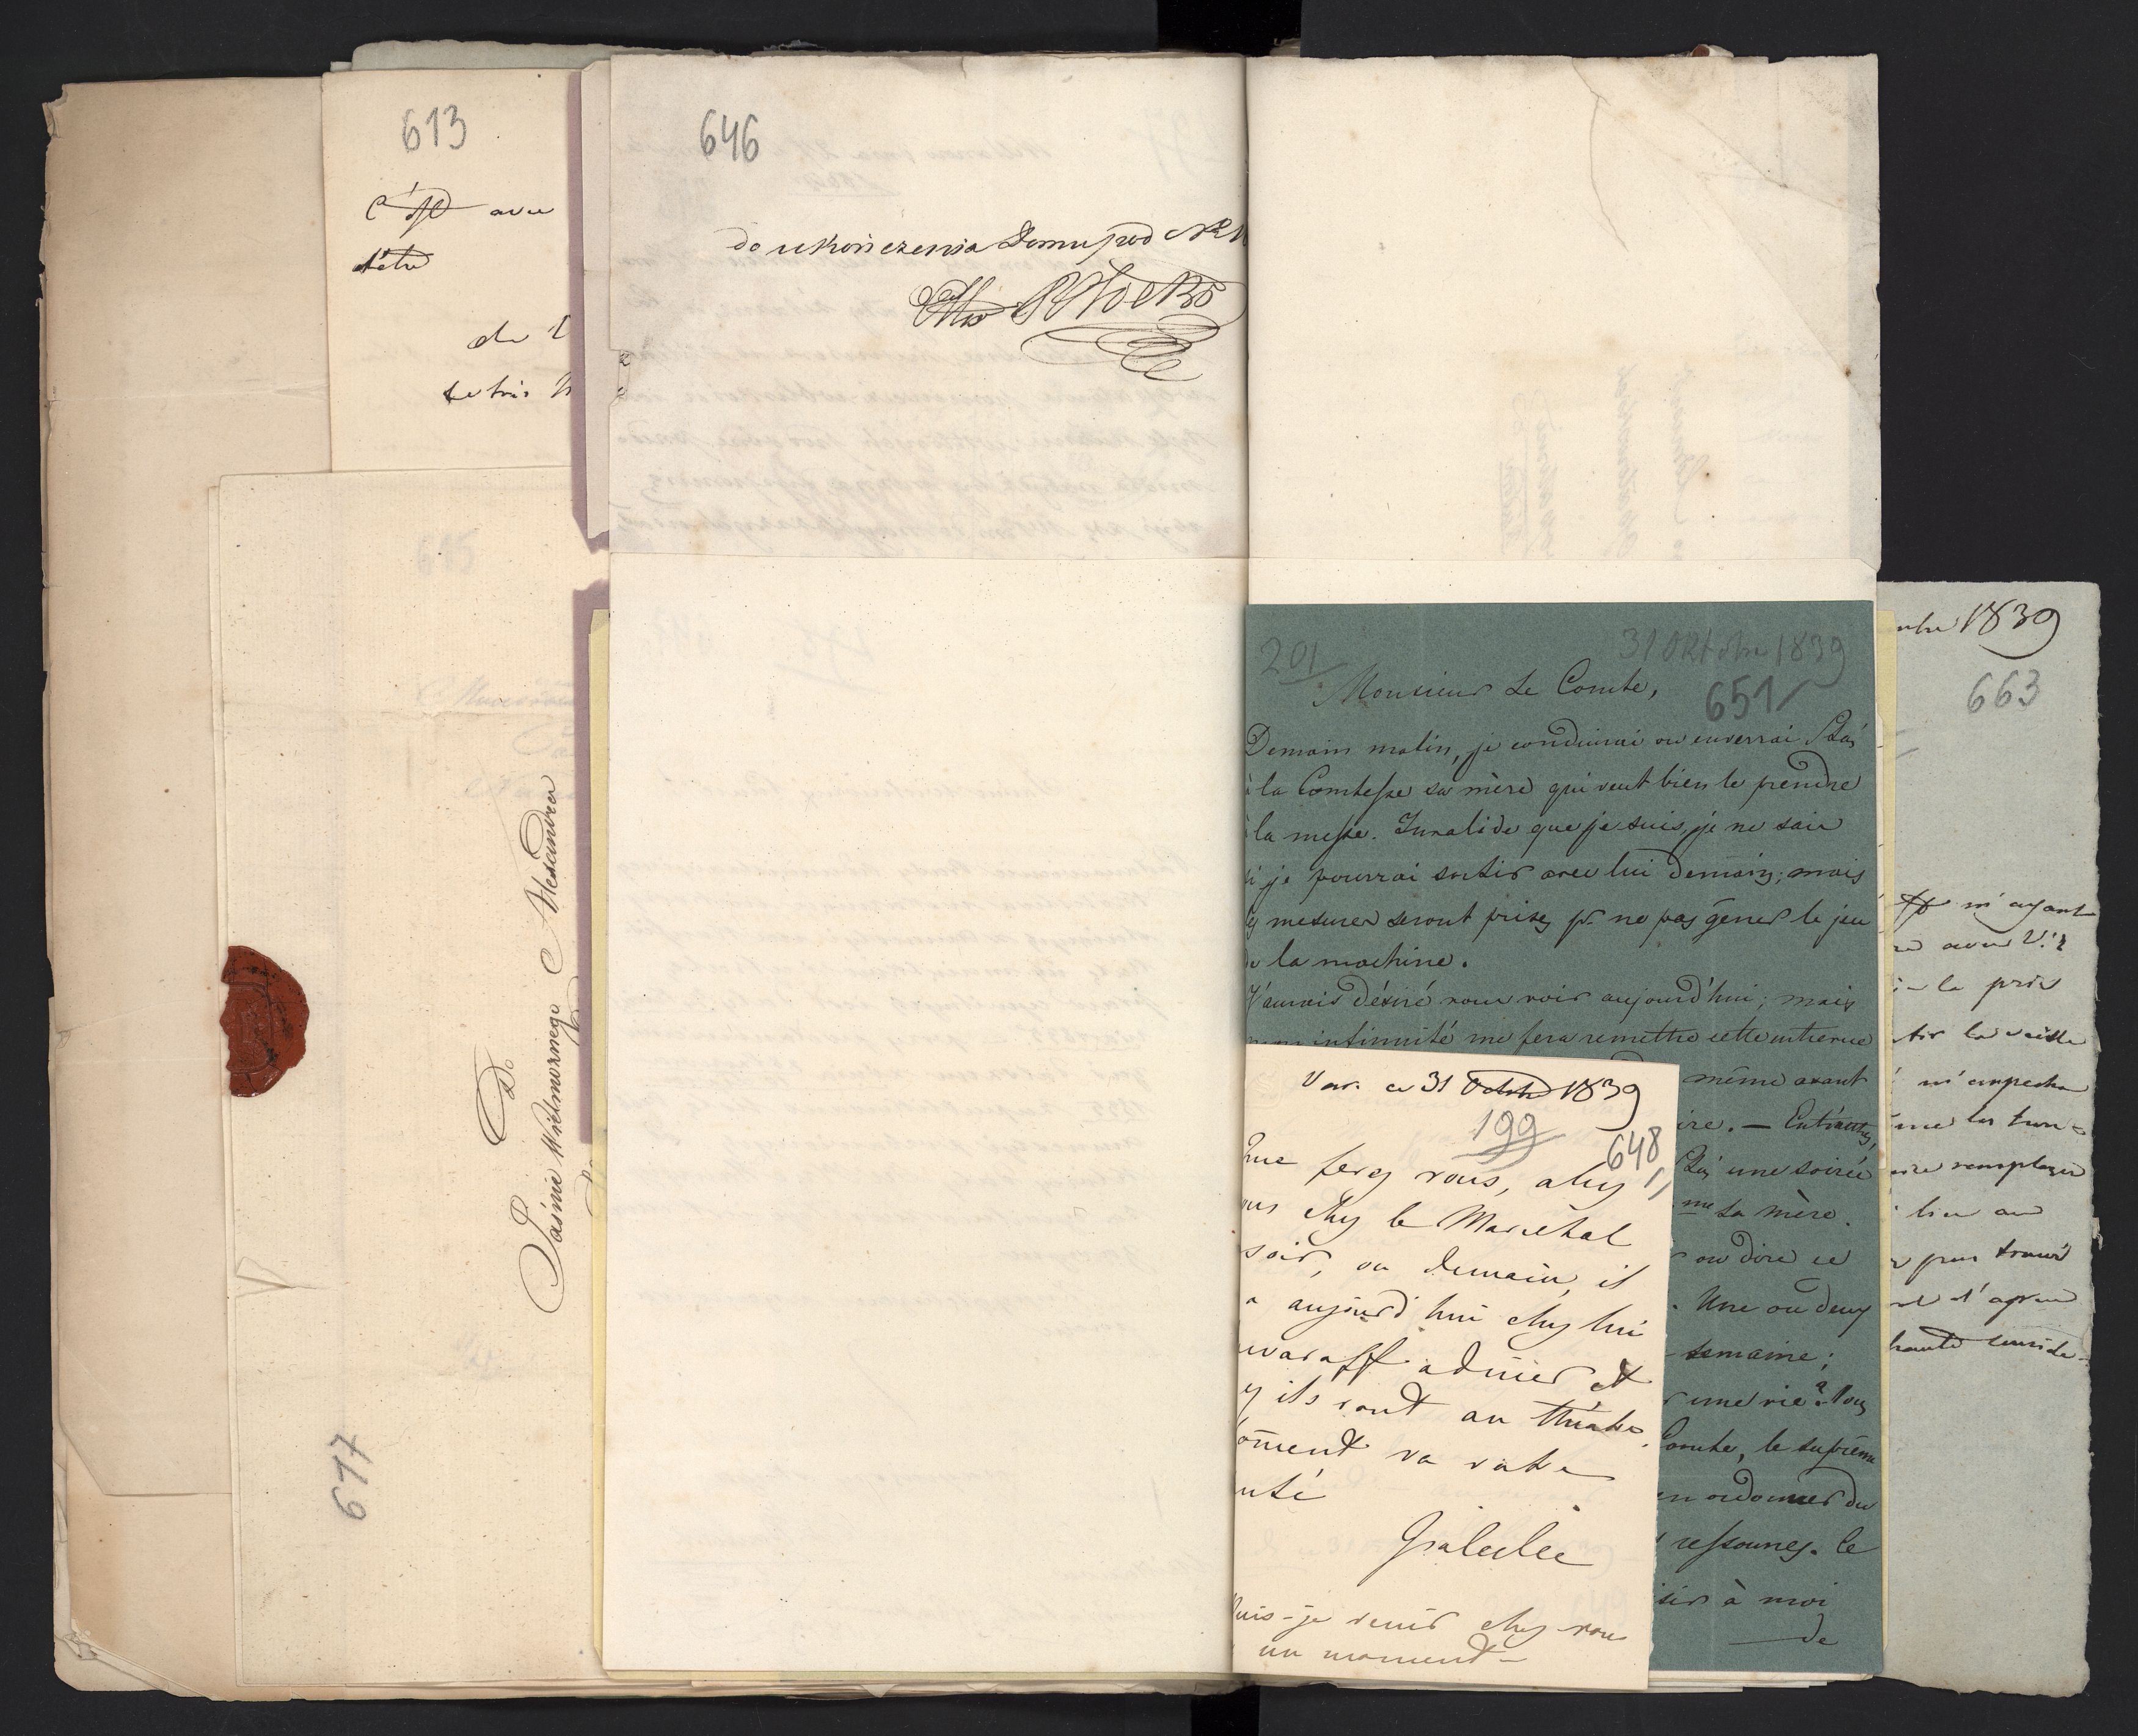 613
C'est avec
d'être
de
646
do ukończenia Domu pod №
615
Do
Jaśnie Wielmożnego Alexandra
617
201
31 Oktobre 1839
Monsieur Le Comte,
651
Demain matin, je conduirai ou enverrai Stás
à la Comtesse sa mère qui veut bien le prendre
à la messe. Invalide que je suis, je ne sais
si je pourrai sortir avec lui demain; mais
les mesures seront prises pr ne pas gêner le jeu
de la machine.
J'aurais désiré vous voir aujourd'hui; mais
mon infirmité me fera remettre cette entrevue
même avant
ire. — Entretems,
Stás une soirée
me sa mère.
ou dire ce
. Une ou deux
semaine;
une vie à Vous
Comte, le suprême
en ordonner du
ressources. Ce
sir à moi
de
Vars. ce 31 Octobre 1839
199
648
que ferez vous, allez
vous chez le Maréchal
soir, ou demain, il
a aujourd'hui chez lui
uwaroff à diner et
y ils vont au théatre.
Comment va votre
nté
Puis-je venir chez vous
un moment —
mbre 1839
663
m'ayant
avec
la prie
m'empecha
remplacer
lieu au
pas trouvé
haute conside-